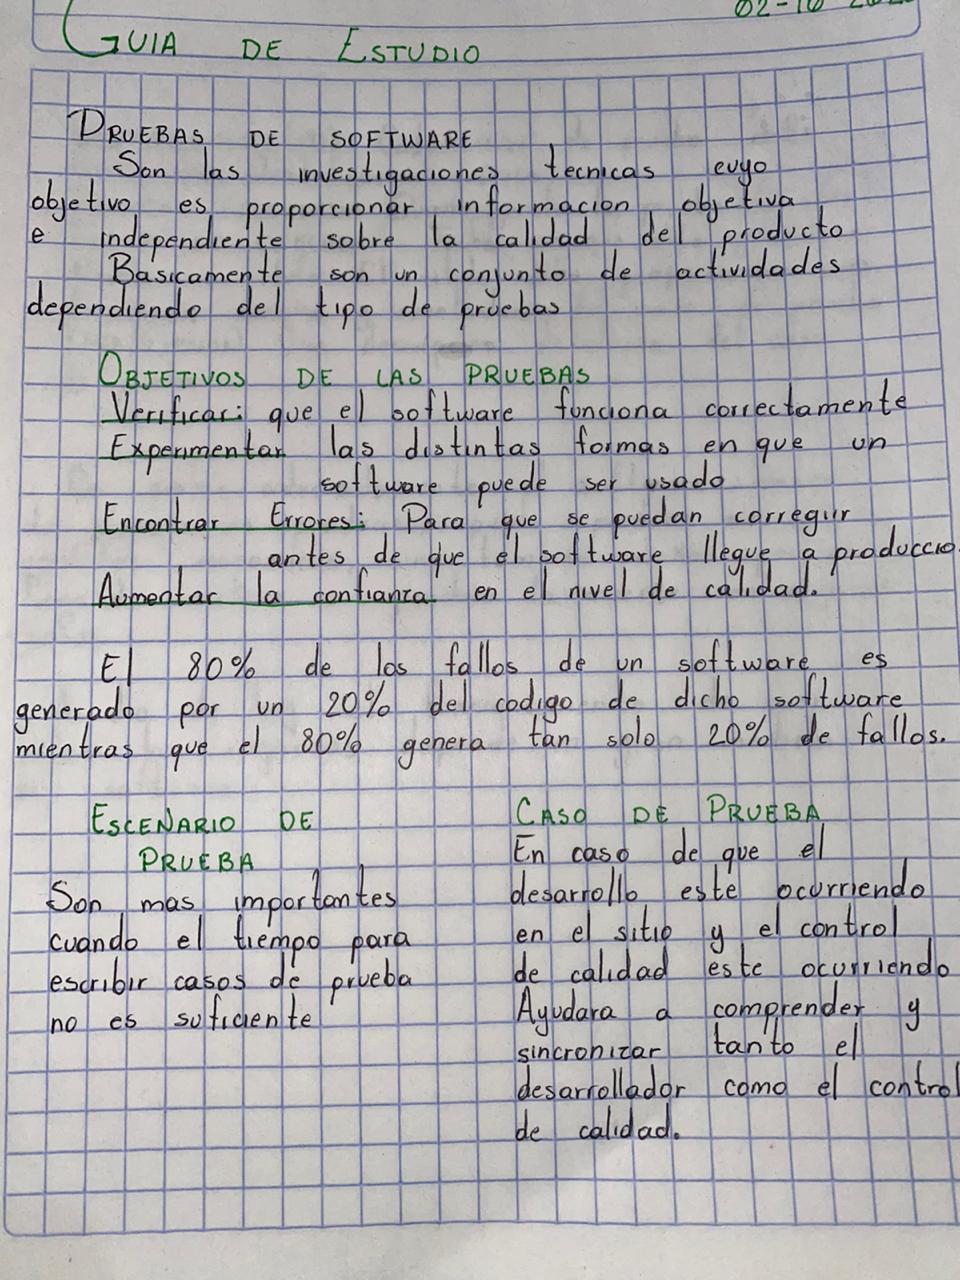 02-10
GUIA DE ESTUDIO
PRUEBAS DE SOFTWARE
Son las investigaciones tecnicas cuyo
objetivo es proporcionar informacion objetiva
e independiente sobre la calidad del producto
Basicamente son un conjunto de actividades
dependiendo del tipo de pruebas
OBJETIVOS DE LAS PRUEBAS
Verificar: que el software funciona correctamente
Experimentar las distintas formas en que un
software puede ser usado
Encontrar Errores: Para que se puedan corregir
antes de que el software llegue a produccio
Aumentar la confianza en el nivel de calidad.
El 80% de los fallos de un software es
generado por un 20% del codigo de dicho software
mientras que el 80% genera tan solo 20% de fallos.
ESCENARIO DE
PRUEBA
Son mas importantes
cuando el tiempo para
escribir casos de prueba
no es suficiente
CASO DE PRUEBA
En caso de que el
desarrollo este ocurriendo
en el sitio y el control
de calidad este ocurriendo
Ayudara a comprender y
sincronizar tanto el
desarrollador como el control
de calidad.